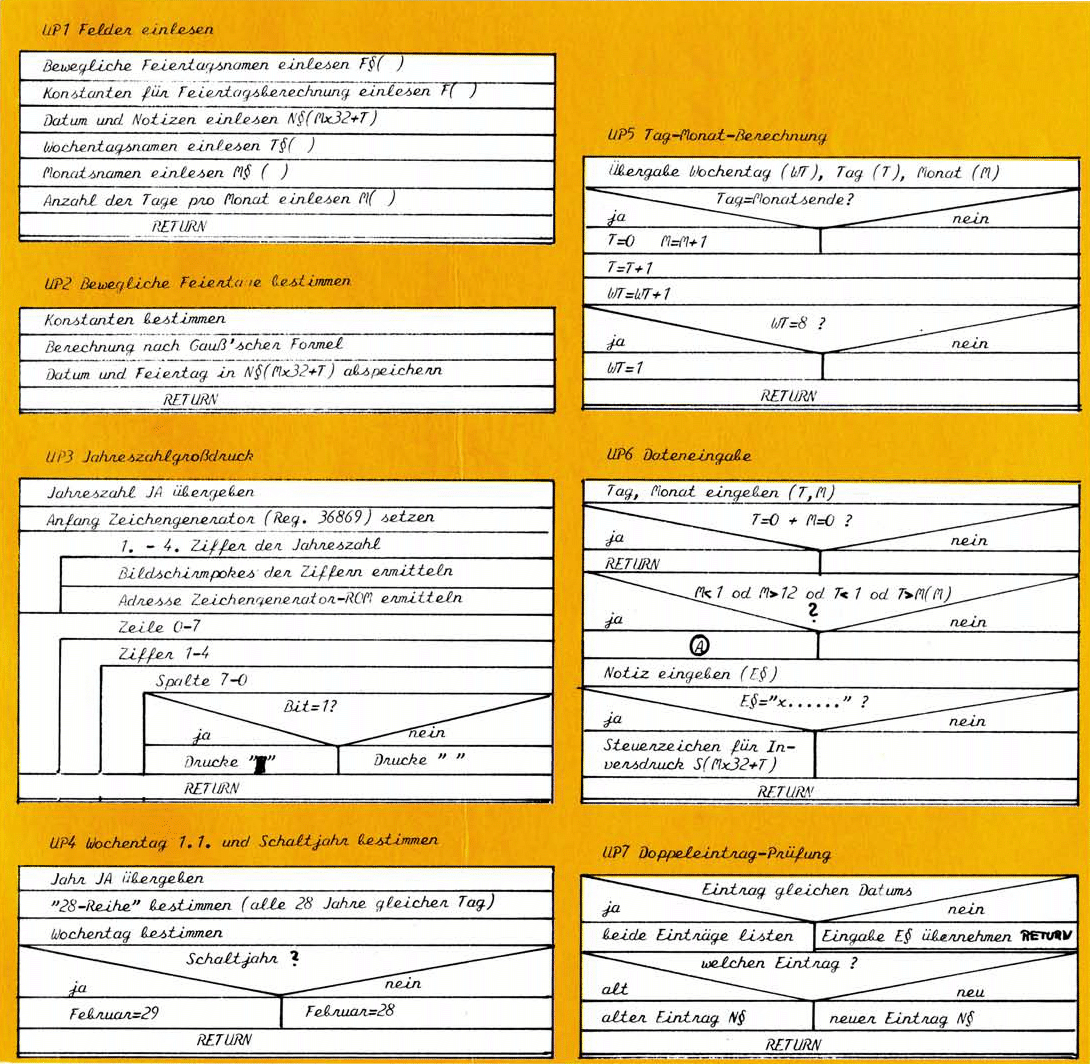 UP1 Felder einlesen
Bewegliche Feiertagsnamen einlesen F§( )
Konstanten für Feiertagsberechnung einlesen F( )
Datum und Notizen einlesen N§(Mx32+T)
Wochentagsnamen einlesen T§( )
Monatsnamen einlesen M§ ( )
Anzahl der Tage pro Monat einlesen M( )
RETURN
UP2 Bewegliche Feiertage bestimmen
Konstanten bestimmen
Berechnung nach Gauß'scher Formel
Datum und Feiertag in N§(Mx32+T) abspeichern
RETURN
UP3 Jahreszahlgroßdruck
Jahreszahl JA übergeben
Anfang Zeichengenerator (Reg. 36869) setzen
1. - 4. Ziffer der Jahreszahl
Bildschirmpokes der Ziffern ermitteln
Adresse Zeichengenerator-ROM ermitteln
Zeile 0-7
Ziffer 1-4
Spalte 7-0
Bit=1?
ja nein
Drucke "█" Drucke " "
RETURN
UP4 Wochentag 1.1. und Schaltjahr bestimmen
Jahr JA übergeben
"28-Reihe" bestimmen (alle 28 Jahre gleicher Tag)
Wochentag bestimmen
Schaltjahr ?
ja nein
Februar=29 Februar=28
RETURN
UP5 Tag-Monat-Berechnung
Übergabe Wochentag (WT), Tag (T), Monat (M)
Tag=Monatsende?
ja nein
T=0 M=M+1
T=T+1
WT=WT+1
WT=8 ?
ja nein
WT=1
RETURN
UP6 Dateneingabe
Tag, Monat eingeben (T,M)
T=0 + M=0 ?
ja nein
RETURN
M<1 od M>12 od T<1 od T>M(M)
?
ja nein
A
Notiz eingeben (E§)
E§="x......" ?
ja nein
Steuerzeichen für In-
versdruck S(Mx32+T)
RETURN
UP7 Doppeleintrag-Prüfung
Eintrag gleichen Datums
ja nein
beide Einträge listen Eingabe E§ übernehmen RETURN
welchen Eintrag ?
alt neu
alter Eintrag N§ neuer Eintrag N§
RETURN